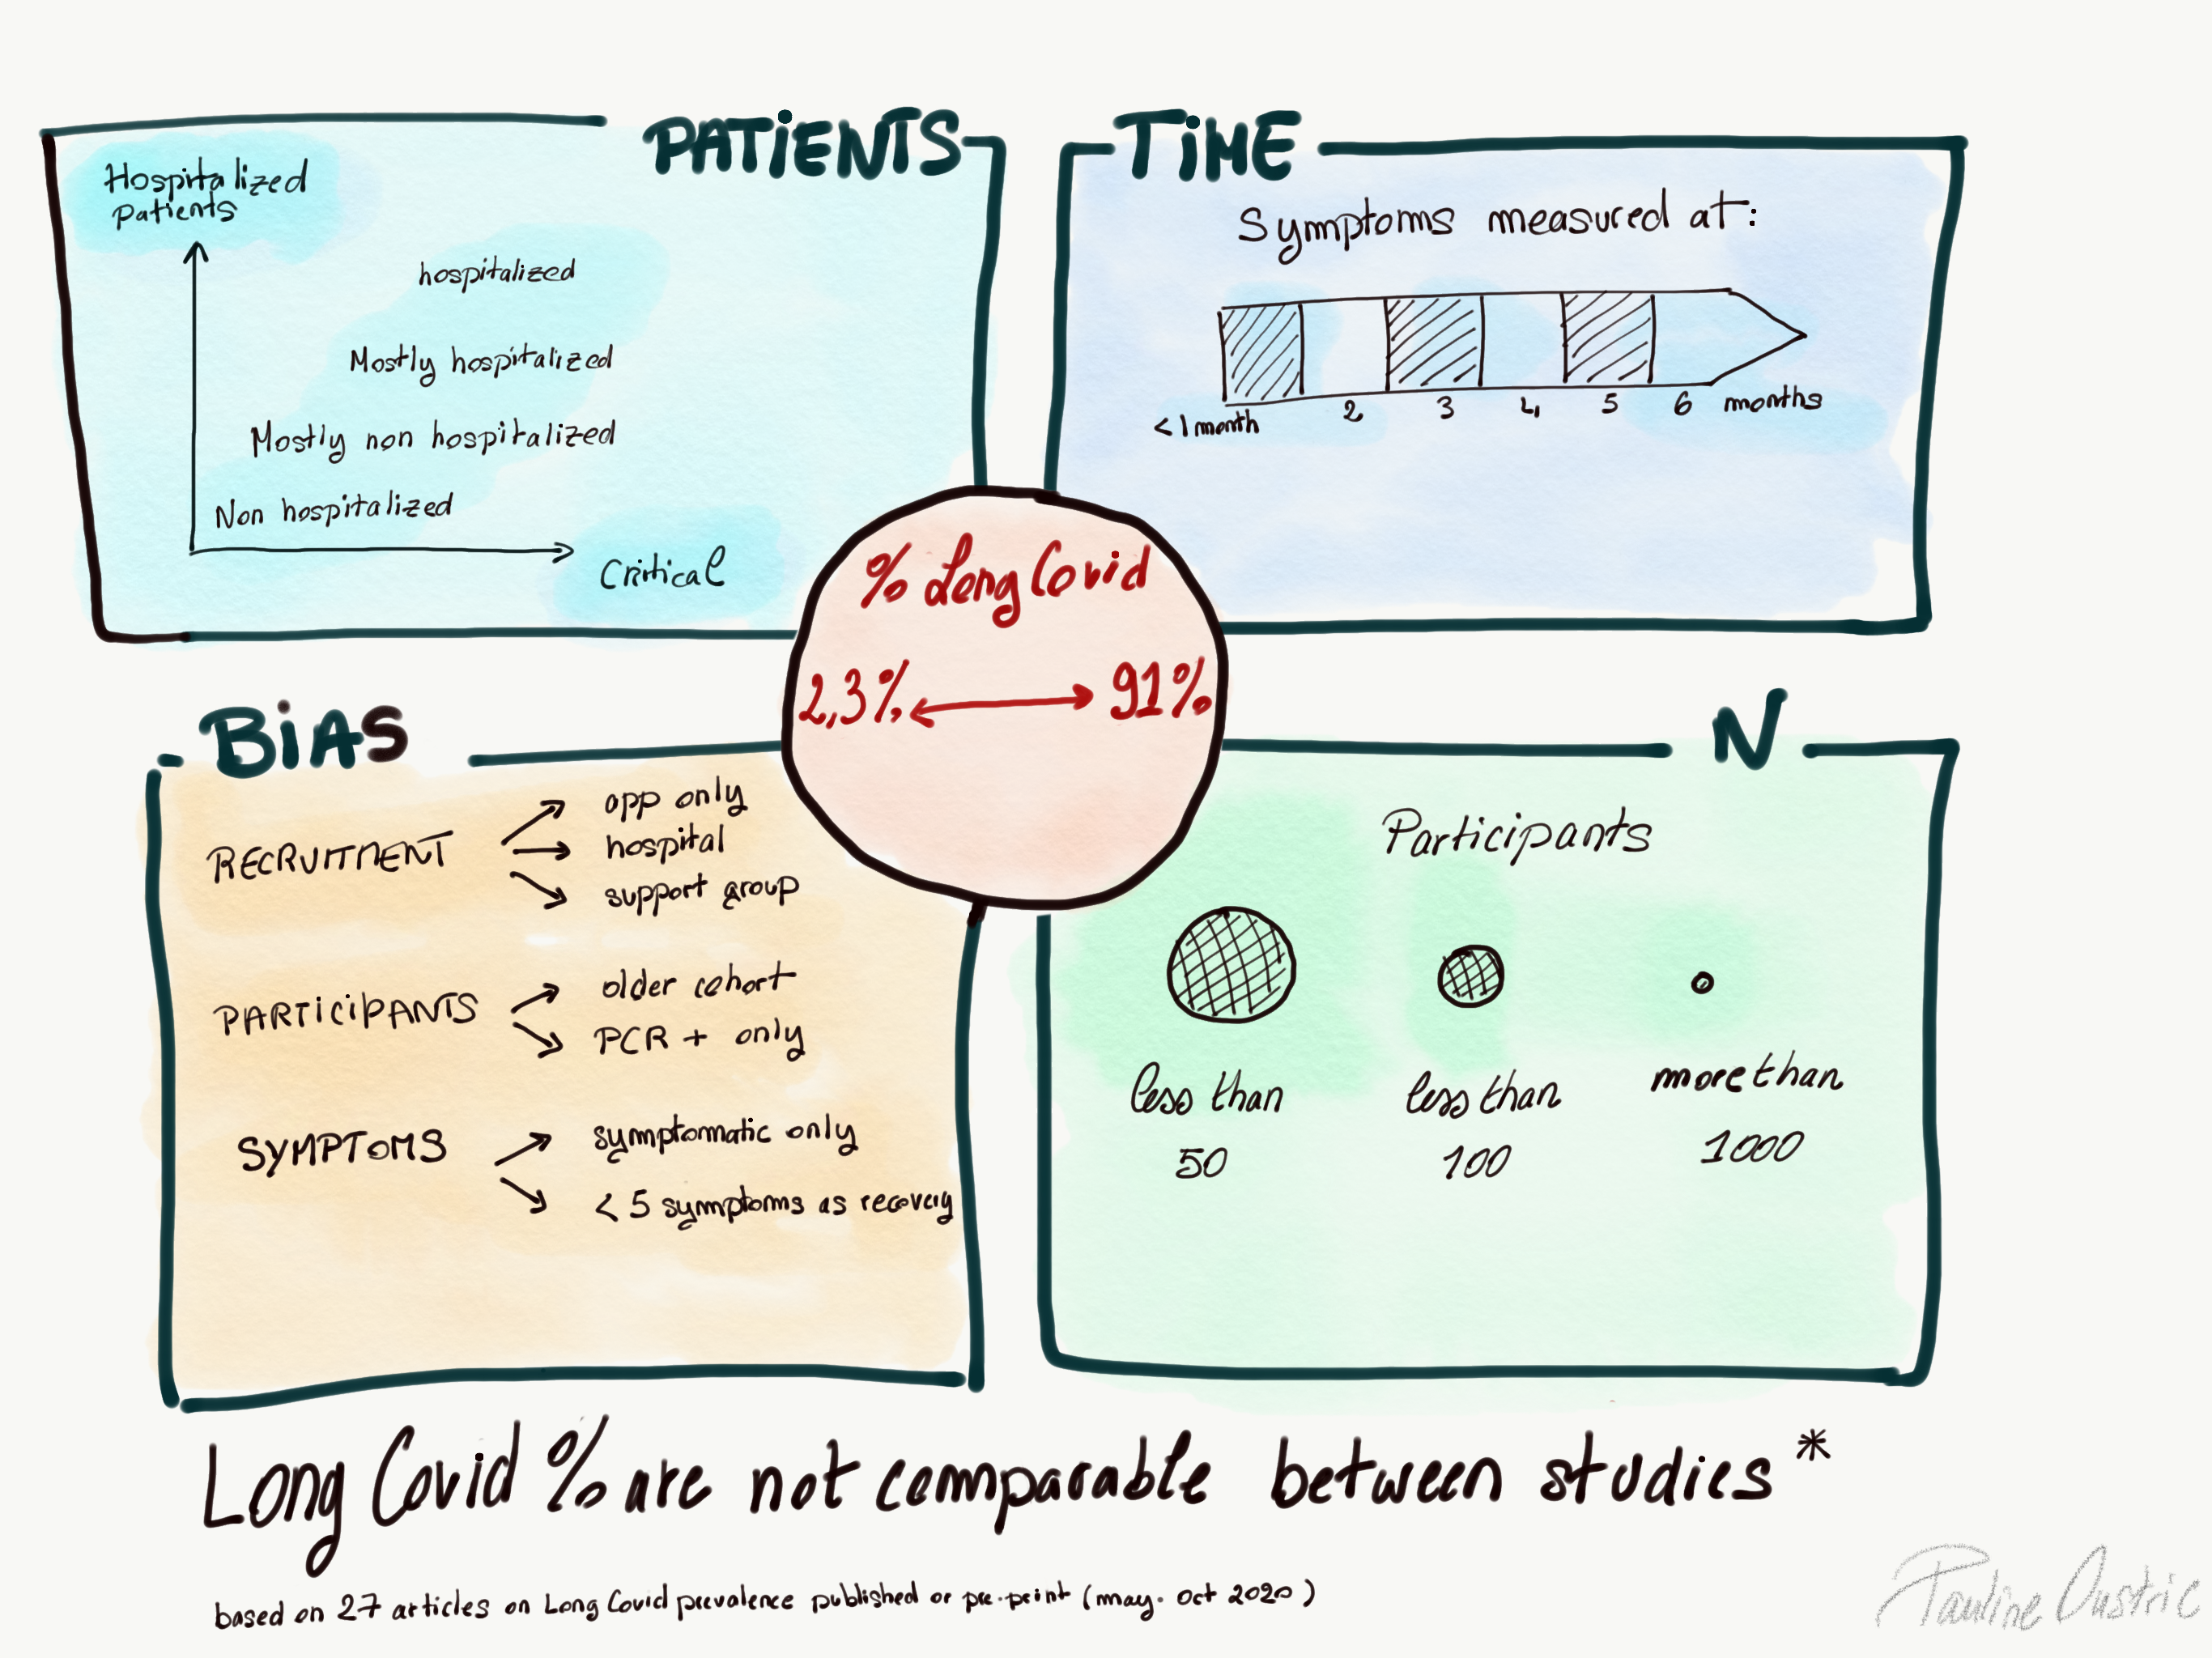 PATIENTS
Hospitalized
patients
hospitalized
Mostly hospitalized
Mostly non hospitalized
Non hospitalized
Critical
TiME
Symptoms measured at:
<1 month 2 3 4 5 6 months
% Long Covid
2,3% 91%
BiAS
RECRUITMENT
app only
hospital
support group
PARTiCiPANTS
older cohort
PCR + only
SYMPTOMS
symptomatic only
< 5 symptoms as recovery
N
Participants
less than
50
less than
100
more than
1000
Long Covid % are not comparable between studies *
based on 27 articles on Long Covid prevalence published or pre-print (may. Oct 2020)
Pauline Oustric